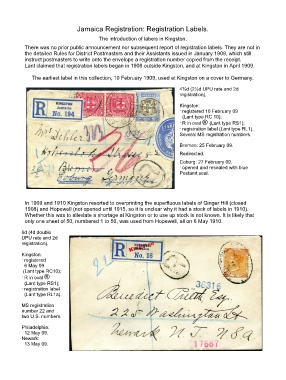 Jamaica Registration: Registration Labels.
The introduction of labels in Kingston.
There was no prior public announcement nor subsequent report of registration labels. They are not in
the detailed Rules for District Postmasters and their Assistants issued in January 1908, which still
instruct postmasters to write onto the envelope a registration number copied from the receipt.
Lant claimed that registration labels began in 1908 outside Kingston, and at Kingston in April 1909.
The earliest label in this collection, 10 February 1909, used at Kingston on a cover to Germany.
Kingston:
registered 10 February 09
(Lant type RC 10);
R in oval ® (Lant type RS1);
registration label (Lant type RL1).
Several MS registration numbers.
Bremen: 25 February 09.
Redirected.
Coburg: 27 February 09.
opened and resealed with blue
Postamt seal.
R
KINGSTON
Jamaica
No. 194
Bremen
Germany
In 1909 and 1910 Kingston resorted to overprinting the superfluous labels of Ginger Hill (closed
1908) and Hopewell (not opened until 1915, so it is unclear why it had a stock of labels in 1910).
Whether this was to alleviate a shortage at Kingston or to use up stock is not known. It is likely that
only one sheet of 50, numbered 1 to 50, was used from Hopewell, all on 6 May 1910.
6d (4d double
UPU rate and 2d
registration).
Kingston:
registered
6 May 09
(Lant type RC10);
R in oval ®
(Lant type RS1);
registration label
(Lant type RL1a).
MS registration
number 22 and
two U.S. numbers.
Philadelphia:
12 May 09.
Newark:
13 May 09.
R
No. 16
36316
Benedict Prieth Esq.
225 Washington St
Newark N. J. USA
17567